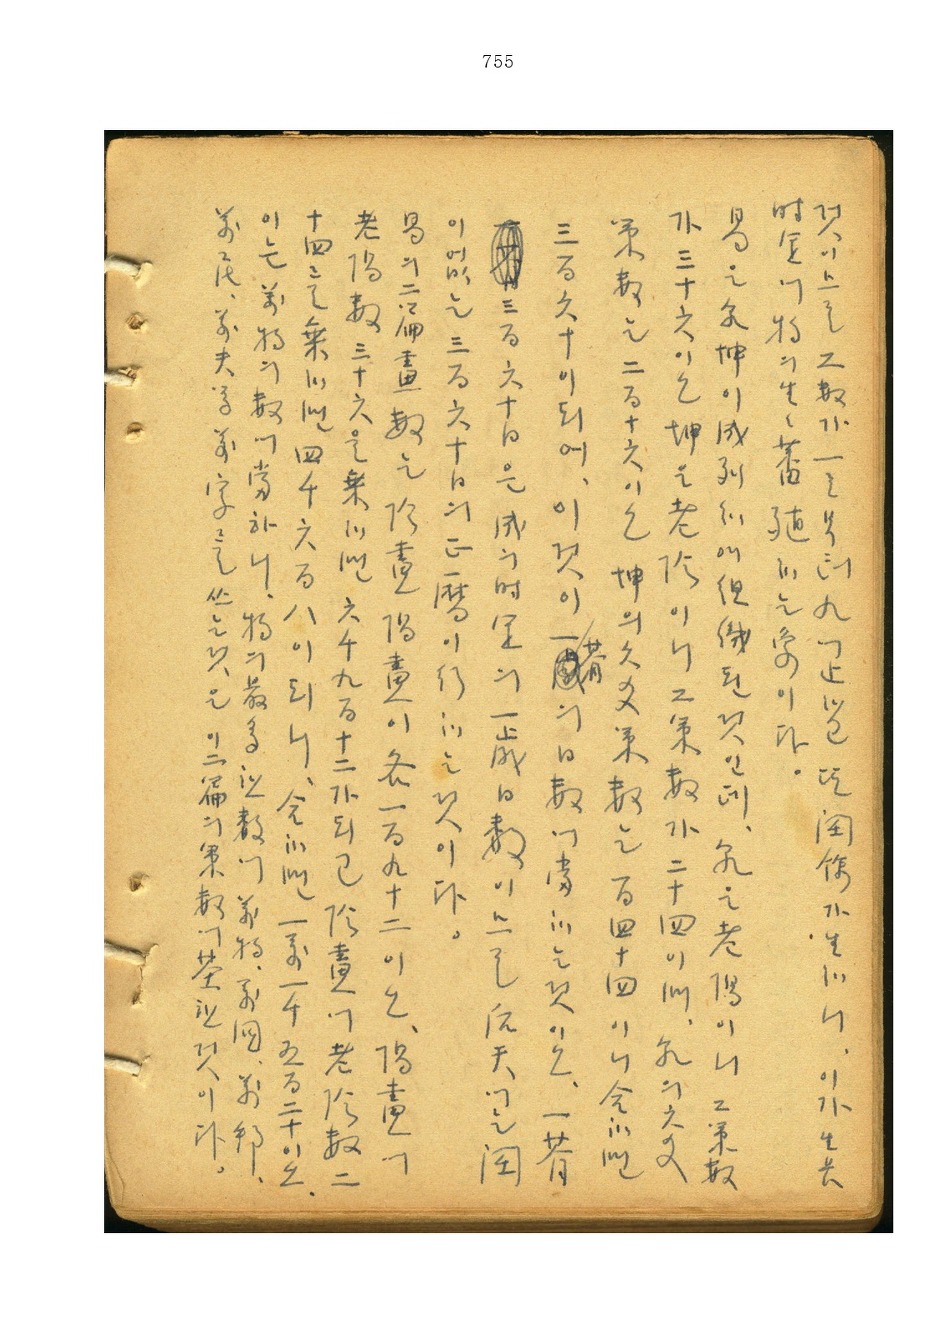 755
것이므로 그 數가 一로부터 九에 止하면 또 閏餘가 生하니, 이가 生長
時運에 物의 生生蕃殖하는 象이다.
易은 乾坤이 成列하여 組織된 것인데, 乾은 老陽이니 그 策數
가 三十六이오 坤은 老陰이니 그 策數가 二十四이며, 乾의 六爻
策數는 二百十六이오 坤의 六爻策數는 百四十四이니 合하면
三百六十이 되어, 이것이 一朞의 日數에 當하는 것이오, 一朞
三百六十日은 成의 時運의 一歲日數이므로 后天에는 閏
이 없는 三百六十日의 正曆이 行하는 것이다.
易의 二篇 畫數는 陰畫 陽畫이 各一百九十二이오, 陽畫에
老陽數 三十六을 乘하면 六千九百十二가 되고 陰畫에 老陰數 二
十四를 乘하면 四千六百八이 되니, 合하면 一萬一千五百二十이오,
이는 萬物의 數에 當하니, 物의 最多한 數에 萬物, 萬國, 萬邦,
萬民, 萬夫等 萬字를 쓰는 것은 이 二篇의 策數에 基한 것이다.